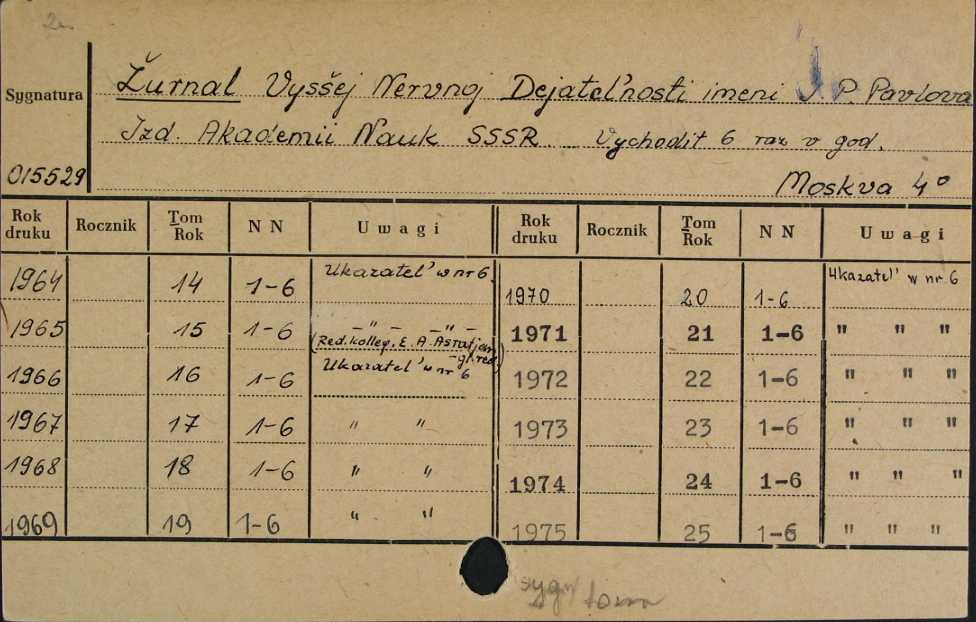 2
Sygnatura
Žurnal Vysšej Nervnoj Dejatel'nosti imeni I. P. Pavlova
Izd. Akademii Nauk SSSR Vychodit 6 raz v god.
015529
Moskva 4°
Rok druku Rocznik Tom Rok N N Uwagi Rok druku Rocznik Tom Rok N N Uwagi
1964 14 1-6 Ukazatel' w nr 6. 1970 20 1-6 Ukazatel' w nr 6
1965 15 1-6 – " – – " – 1971 21 1-6 " " "
(Red. kolleg. E. A. Asratjan
- gł. red.)
1966 16 1-6 Ukazatel' w nr 6 1972 22 1-6 " " "
1967 17 1-6 " " 1973 23 1-6 " " "
1968 18 1-6 " " 1974 24 1-6 " " "
1969 19 1-6 " " 1975 25 1-6 " " "
sygn